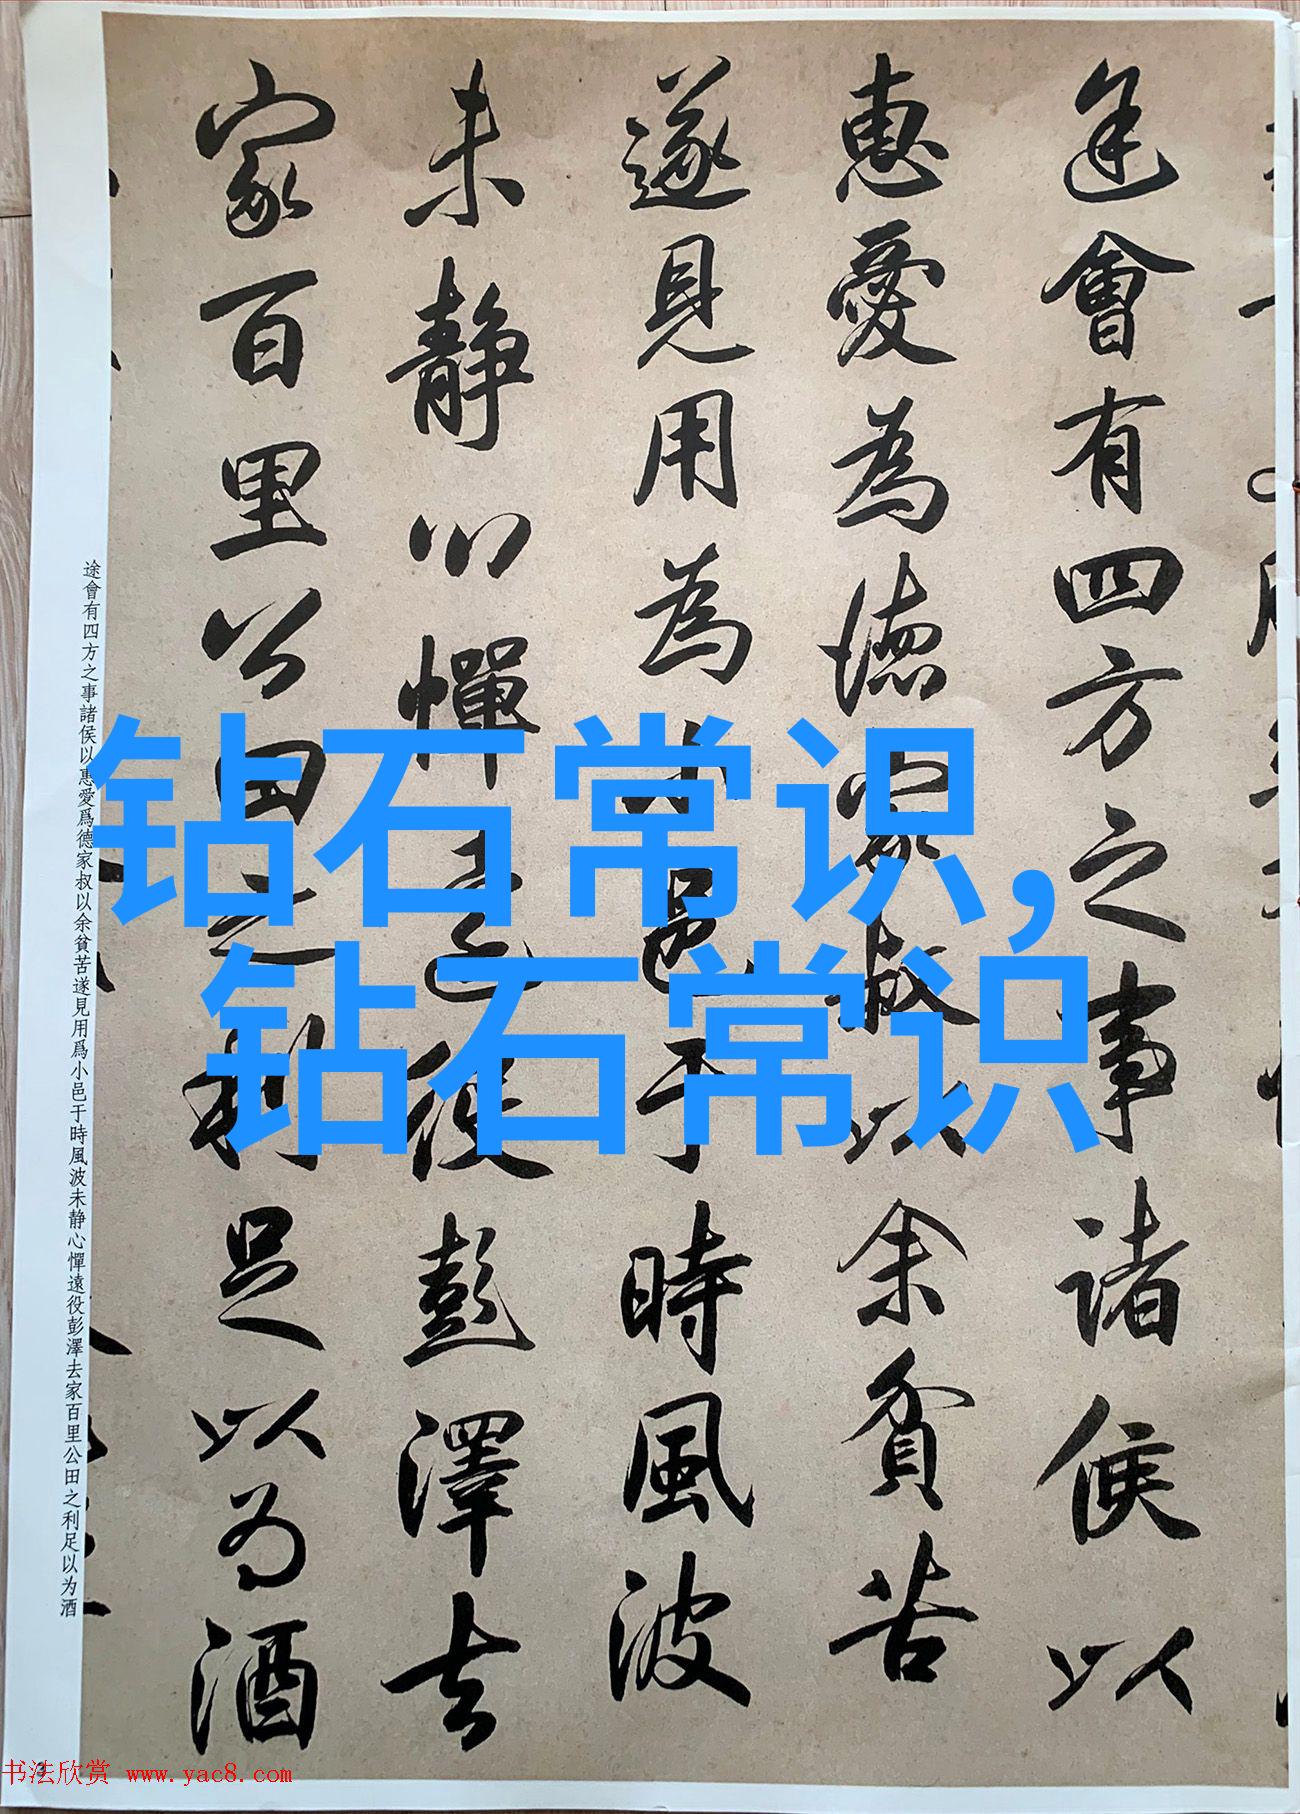 途會有四方之事諸侯以
惠愛為德家叔以余貧苦
遂見用為小邑于時風波
未静心憚遠役彭澤去
家百里公田之利足以为酒
途會有四方之事諸侯以惠愛爲德家叔以余貧苦遂見用爲小邑于時風波未静心憚遠役彭澤去家百里公田之利足以为酒
钻石常识,
钻石常识
3
书法欣赏 www.yac8.com